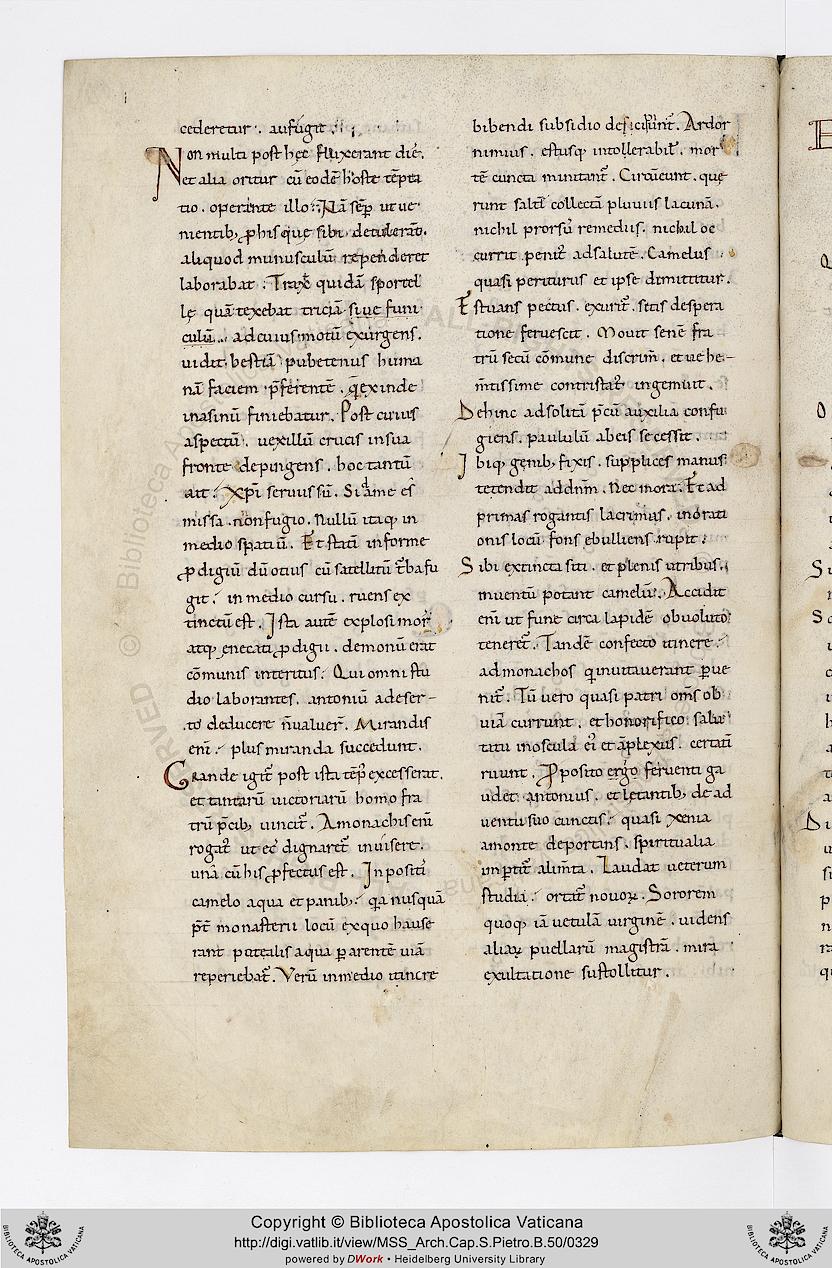 cederetur. aufugit.
Non multi post hęc fluxerant die᷒.
et alia oritur cū eodē hoste tēpta
tio. operante illo. Nā sēp ut ue
nientib; ꝓ his quę sibi detulerāt.
aliquod munusculū rependeret
laborabat. Traxit quidā sportel
lę quā texebat triciā siue funi
culū. ad cuius motū exurgens.
uidit bestiā pubetenus huma
nā faciem p̄ferentē. q̄ exinde
in asinū finiebatur. Post cuius
aspectū. uexillū crucis in sua
fronte depingens. hoc tantū
ait. Xp̄i seruus sū. Si ad me es
missa. non fugio. Nullū itaq; in
medio spatiū. Et statī informe
ꝓdigiū dū otius cū satellitū t̄ba fu
git. in medio cursu. ruens ex
tinctū est. Ista autē explosi mor
atq; enecati ꝓdigii. demonū erat
cōmunis interitus. Qui omni stu
dio laborantes. antoniū a deser-
to deducere n̄ ualuer̄. Mirandis
eni᷒. plus miranda succedunt.
Grande igit᷒ post ista tēp᷒ excesserat.
et tantarū uictoriarū homo fra
trū p̄cib; uincit᷒. A monachis eni᷒
rogat᷒ ut eos dignaret᷒ inuisere.
unā cū his ꝓfectus est. Inpositi
camelo aqua et panib;. qa nusquā
p̄t monasterii locū ex quo hause
rant potealis aqua ꝑ arentē uiā
reperiebat᷒. Verū in medio itinere
bibendi subsidio deficiunt᷒. Ardor
nimius. estusq; intollerabil. mor
tē cuncta minitant᷒. Circūeunt. quę
runt saltē collectā pluuiis lacunā.
nichil prorsū remediis. nichil oc
currit penit᷒ ad salutē. Camelus
quasi periturus et ipse dimittitur.
Estuans pectus. exurit᷒. setis despera
tione feruescit. Mouit senē fra
trū secū cōmune discrim̄. et uehe-
m̄tissime contristat᷒ ingemuit.
Dehinc ad solitā p̄cū auxilia confu
giens. paululū ab eis secessit.
Ibiq; genib; fixis. supplices manus
tetendit ad dn̄m. Nec mora. Et ad
primas rogantis lacrimas. in orati
onis locū fons ebulliens rupit.
Sibi extincta siti. et plenis utribus.
inuentū potant camelū. Accidit
eni᷒ ut fune circa lapidē obuoluto
teneret᷒. Tandē confecto itinere.
ad monachos q̇ inuitauerant ꝑue
nit᷒. Tū uero quasi patri om̄s ob
uiā currunt. et honorifico salu
tatu in oscula ei᷒ et āplexus. certati᷒
ruunt. Pposito ergo feruenti ga
udet antonius. et lętantib; de ad
uentu suo cunctis. quasi xenia
a monte deportans. spiritualia
inptit᷒ alim̄ta. Laudat ueterum
studia. ortat᷒ nouoꝝ. Sororem
quoq; iā uetulā uirginē. uidens
aliaꝝ puellarū magistrā. mira
exultatione sustollitur.
Copyright © Biblioteca Apostolica Vaticana
http://digi.vatlib.it/view/MSS_Arch.Cap.S.Pietro.B.50/0329
powered by DWork • Heidelberg University Library